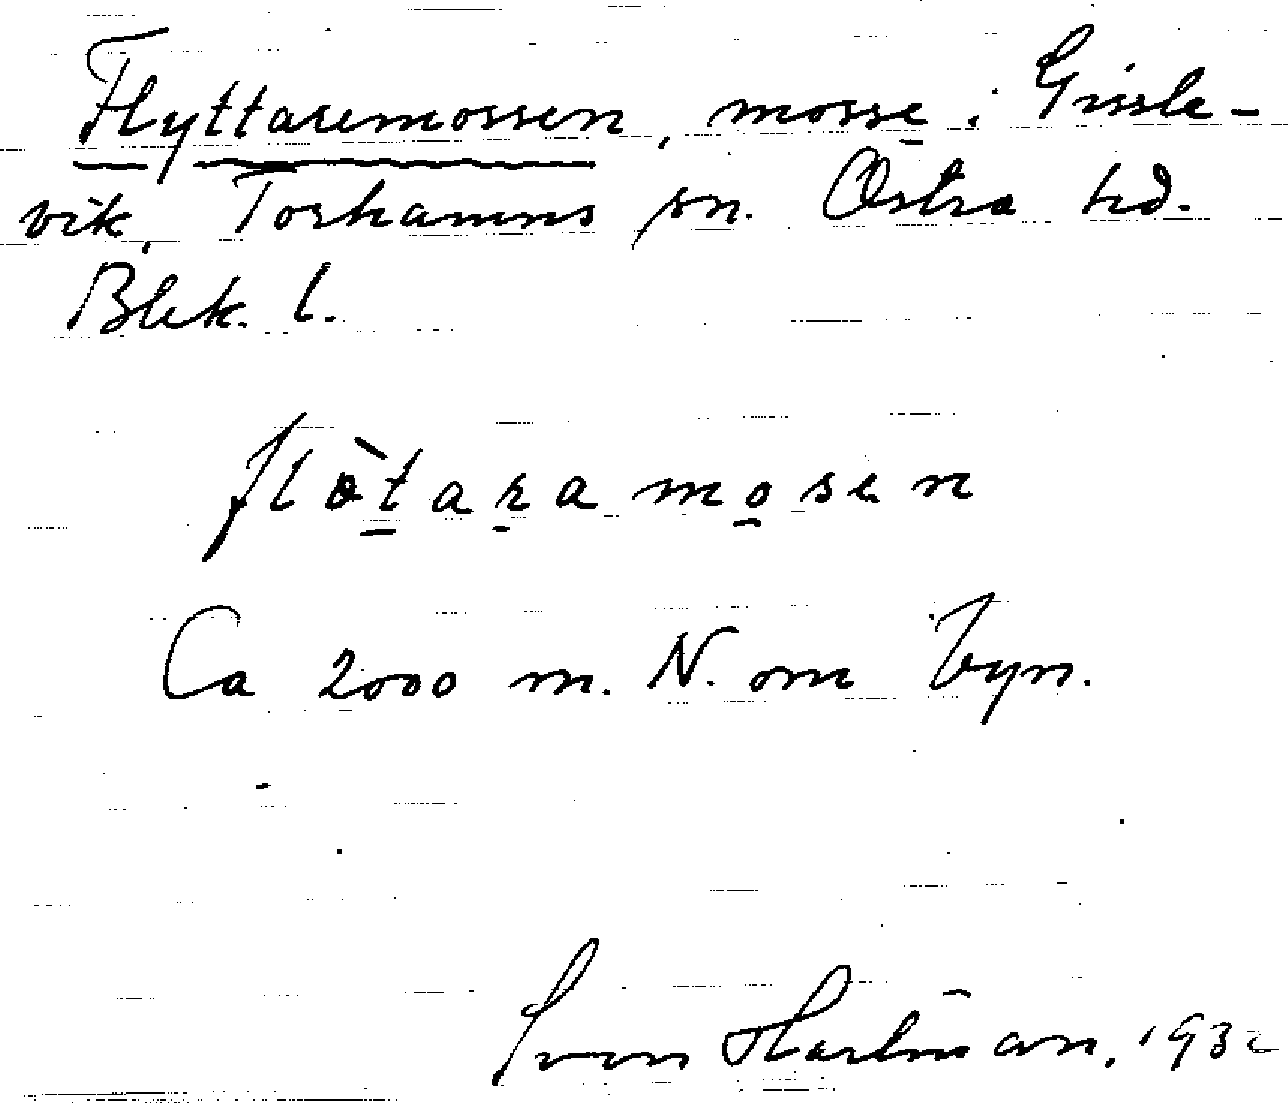 Flyttaremossen, mosse i Gissle-
vik, Torhamns sn. Östra hd.
Blek. l.
flòtaramosen
Ca 2000 m. N. om byn.
Sven Hartman, 1932